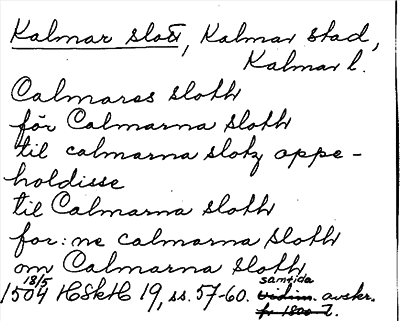 Kalmar slott, Kalmar stad,
Kalmar l.
Calmaras sloth
för Calmarna sloth
til calmarna slotz oppe-
holdisse
til Calmarna sloth
for:ne calmarna sloth
om Calmarna sloth
18/5 samtida
1504 HSkH 19, ss. 57-60. vidim. avskr.